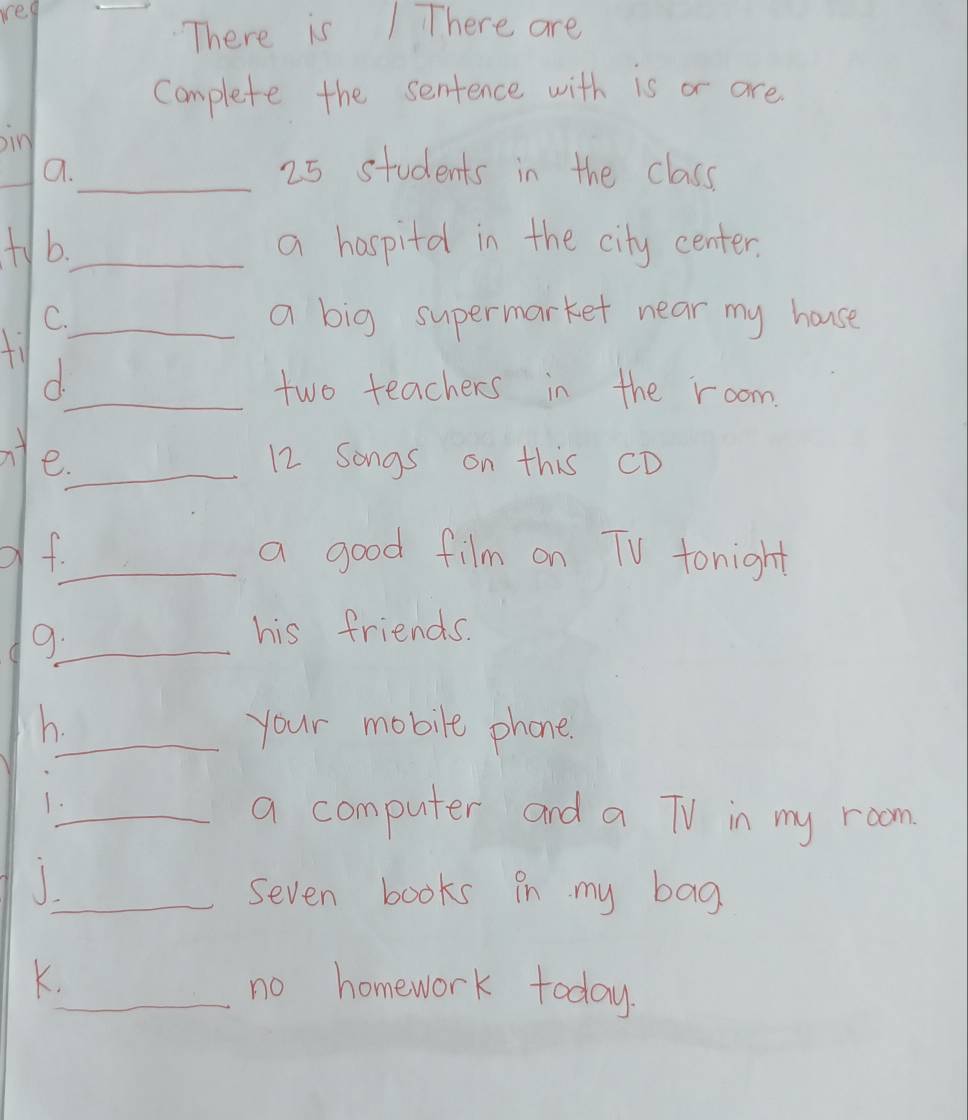 There is / There are
Complete the sentence with is or are.
a. ________ 25 students in the class.
b. ________ a hospital in the city center.
c. ________ a big supermarket near my house
d. ________ two teachers in the room.
e. ________ 12 Songs on this CD
f. ________ a good film on TV tonight
g. ________ his friends.
h. ________ your mobile phone.
i. ________ a computer and a TV in my room.
j. ________ seven books in my bag.
K. ________ no homework today.